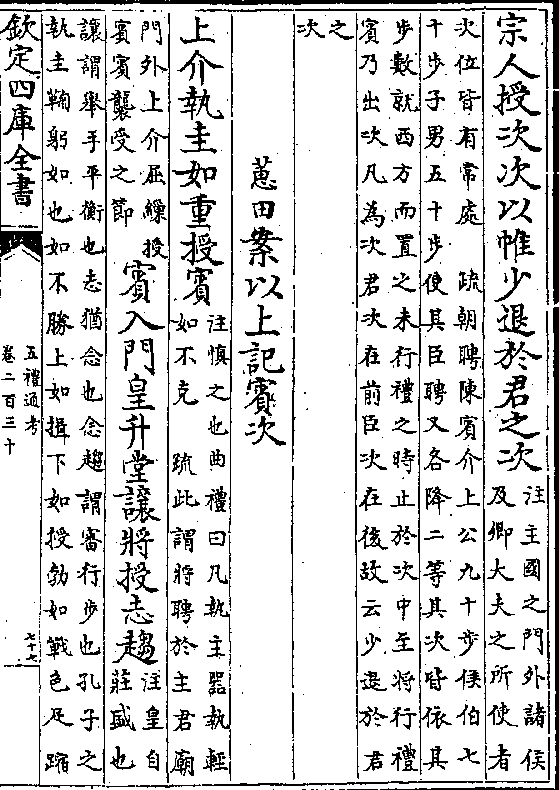 宗人授次次以帷少退於君之次
注主國之門外諸侯
及卿大夫之所使者
次位皆有常處　疏朝聘陳賓介上公九十步侯伯七
十步子男五十步使其臣聘又各降二等其次皆依其
步數就西方而置之未行禮之時止於次中至將行禮
賓乃出次凡為次君次在前臣次在後故云少退於君
之
次
蕙田案以上記賓次
上介執圭如重授賓
注慎之也曲禮曰凡執主器執輕
如不克　疏此謂將聘於主君廟
門外上介屈繅授
賓賓襲受之節
賓入門皇升堂讓將授志趨
注皇自
莊盛也
讓謂舉手平衡也志猶念也念趨謂審行步也孔子之
執圭鞠躬如也如不勝上如揖下如授勃如戰色足蹜
欽定四庫全書
五禮通考
卷二百三十
七十七